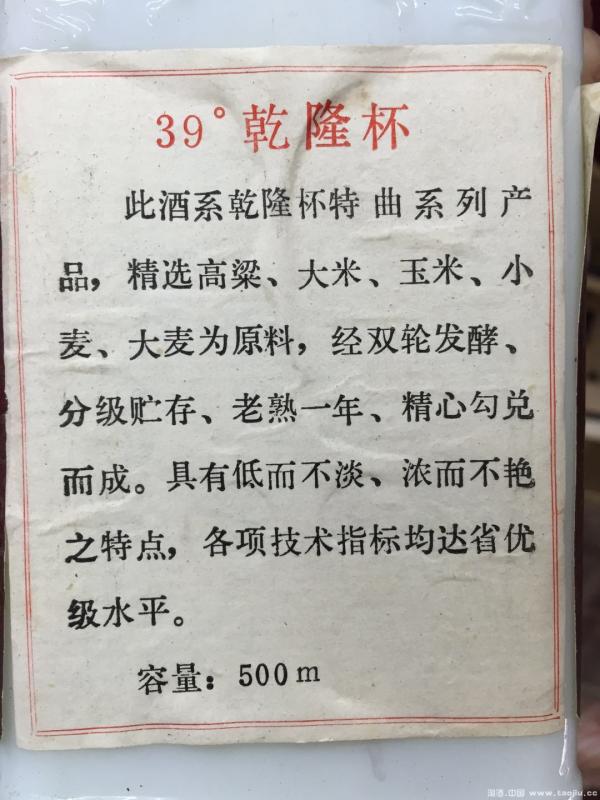 39°乾隆杯
此酒系乾隆杯特曲系列产
品，精选高粱、大米、玉米、小
麦、大麦为原料，经双轮发酵、
分级贮存、老熟一年、精心勾兑
而成。具有低而不淡、浓而不艳
之特点，各项技术指标均达省优
级水平。
容量：500m
淘酒.中国 www.taojiu.cc